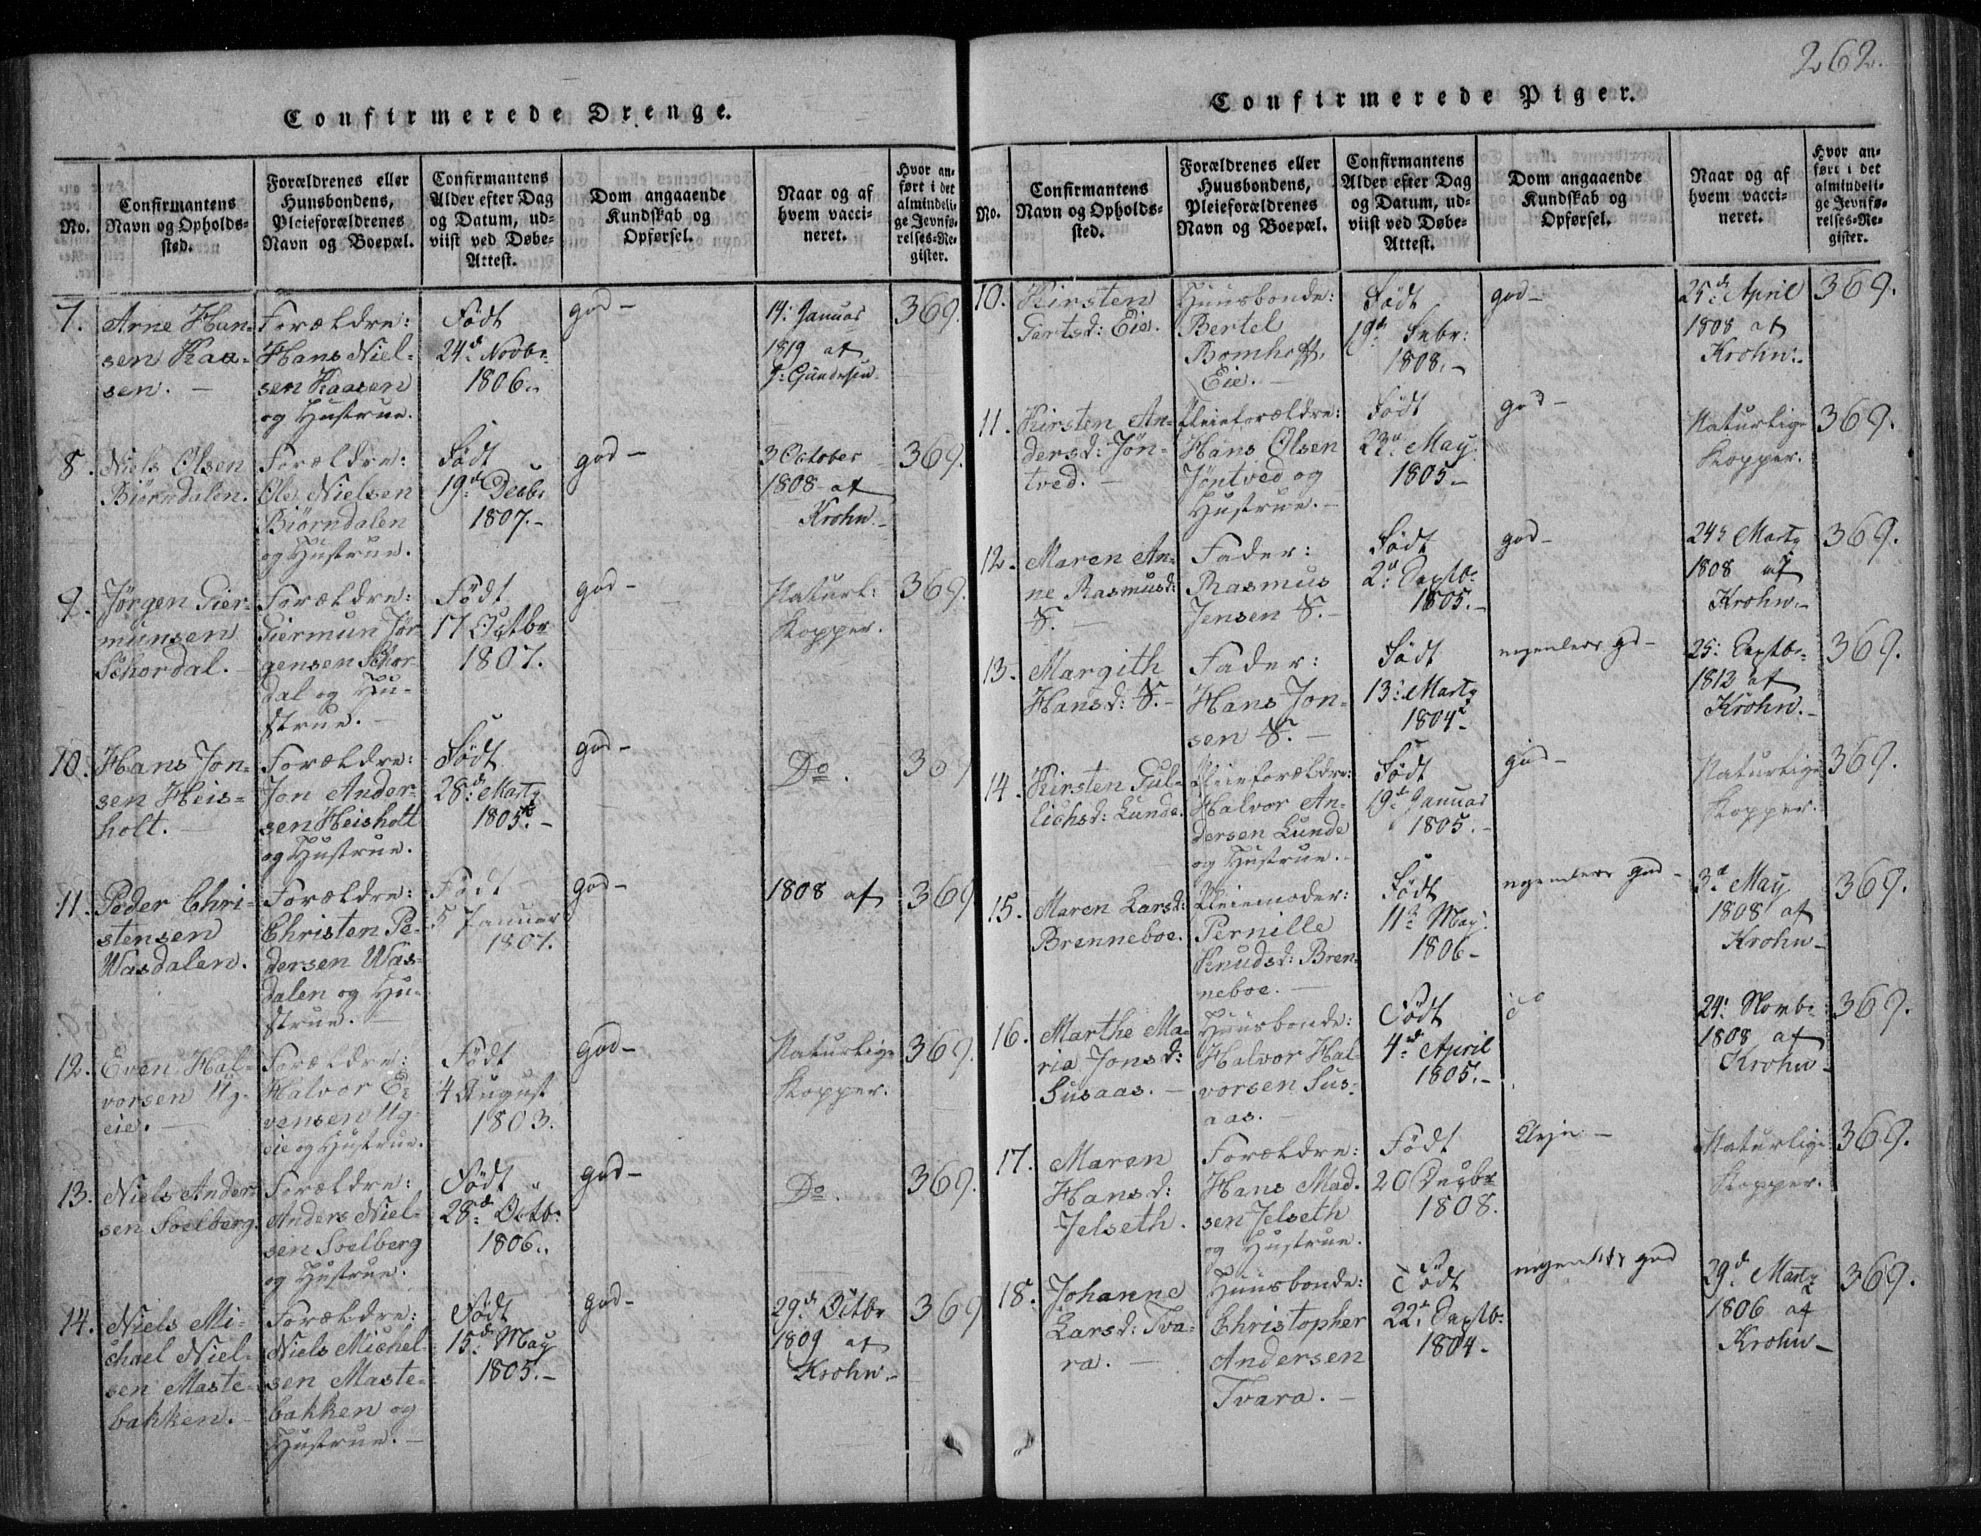 262.
Confirmerede Drenge.
No.
Confirmantens
Navn og Opholds-
sted.
Forældrenes eller
Huusbondens,
Pleieforældrenes
Navn og Boepæl.
Confirmantens
Alder efter Dag
og Datum, ud-
viist ved Døbe-
Attest.
Dom angaaende
Kundskab og
Opførsel.
Naar og af
hvem vacci-
neret.
Hvor an-
ført i det
almindeli-
ge Jevnfø-
relses-Re-
gister.
7.
Arne Han-
sen Kaa-
sen. —
Forældre:
Hans Niel-
sen Kaasen
og Hustrue.
Født
24d. Novbr.
1806.
god —
19: Januar
1819 af
J: Gundesen
369.
8.
Niels Olsen
Biørndalen.
Forældre:
Ole Nielsen
Biørndalen
og Hustrue.
Født
19d. Decbr.
1807. —
god —
3 October
1808 af
Krohn. —
369.
9.
Jørgen Gier-
munsen
Schordal. —
Forældre:
Giermun Jør
gensen Schor-
dal og Hu-
strue. —
Født
17 Octbr
1807.
god —
Naturl:
Kopper.
369.
10.
Hans Jon-
sen Heis-
holt. —
Forældre:
Jon Ander-
sen Heisholt
og Hustrue.
Født
28d. Marty
1805. —
god —
Do.
369
11.
Peder Chri-
stensen
Wasdalen.
Forældre:
Christen Pe-
dersen Was-
dalen og Hu-
strue. —
Født
5 Januar
1807.
god —
1808 af
369
12.
Even Hal-
vorsen Ug-
eie. —
Forældre:
Halvor E-
vensen Ug-
eie og Hustrue.
Født
4 August
1803.
god —
Naturlige
Kopper.
369.
13.
Niels Ander-
sen Soelberg.
Forældre:
Anders Niel-
sen Soelberg
og Hustrue.
Født
28d. Octbr.
1806.
god —
Do.
369.
14.
Niels Mi-
chael Niel-
sen Maste-
bakken. —
Forældre:
Niels Michel-
sen Maste-
bakken og
Hustrue. —
Født
15d. May
1805. —
god —
29d. Octbr
1809 af
Krohn. —
369
Confirmerede Piger.
No.
Confirmantens
Navn og Opholds-
sted.
Forældrenes eller
Huusbondens,
Pleieforældrenes
Navn og Boepæl.
Confirmantens
Alder efter Dag
og Datum, ud-
viist ved Døbe-
Attest.
Dom angaaende
Kundskab og
Opførsel.
Naar og af
hvem vacci-
neret.
Hvor an-
ført i det
almindeli-
ge Jevnfø-
relses-Re-
gister.
10.
Kirsten
Gertsd: Eie.
Huusbonde:
Bertel
Bomhoff,
Eie. —
Født
19d. Febr:
1808. —
god —
25d. April
1808 af
Krohn.
369.
11.
Kirsten An-
dersd: Jøn-
tved. —
Pleieforældre:
Hans Olsen
Jøntved og
Hustrue. —
Født
23d. May
1805 —
god —
Naturlige
Kopper.
369.
12.
Maren An-
ne Rasmusd:
S. —
Fader:
Rasmus
Jensen S. —
Født
2d. Septbr.
1805. —
god —
24d. Marty
1808 af
Krohn. —
369.
13.
Margith
Hansd: S. —
Fader:
Hans Jon-
sen S. —
Født
13: Marty
1804
25: Septbr.
1813 af
Krohn. —
369.
14.
Kirsten Gul-
lichsd: Lunde.
Pleieforældre:
Halvor An-
dersen Lunde
og Hustrue. —
Født
19d. Januar
1805. —
god —
Naturlige
Kopper.
369.
15.
Maren Larsd:
Brenneboe.
Pleiemoder:
Pernille
Knudsd: Bren-
neboe. —
Født
11d. May
1806 —
god —
3d. May
1808 af
Krohn —
369.
16.
Marthe Ma-
ria Jonsd:
Susaas. —
Huusbonde:
Halvor Hal-
vorsen Sus-
aas. —
Født
4d. April
1805. —
do
24: Novbr.
1808 af
Krohn —
369.
17.
Maren
Hansd:
Jelseth.
Forældre:
Hans Mad-
sen Jelseth
og Hustrue.
Født
20 Decbr
1808.
Naturlige
Kopper.
369.
18.
Johanne
Larsd: Tva-
ra. —
Huusbonde:
Christopher
Andersen
Tvara. —
Født
22d. Septbr.
1804 —
god
29d. Marty
1806 af
Krohn —
369.